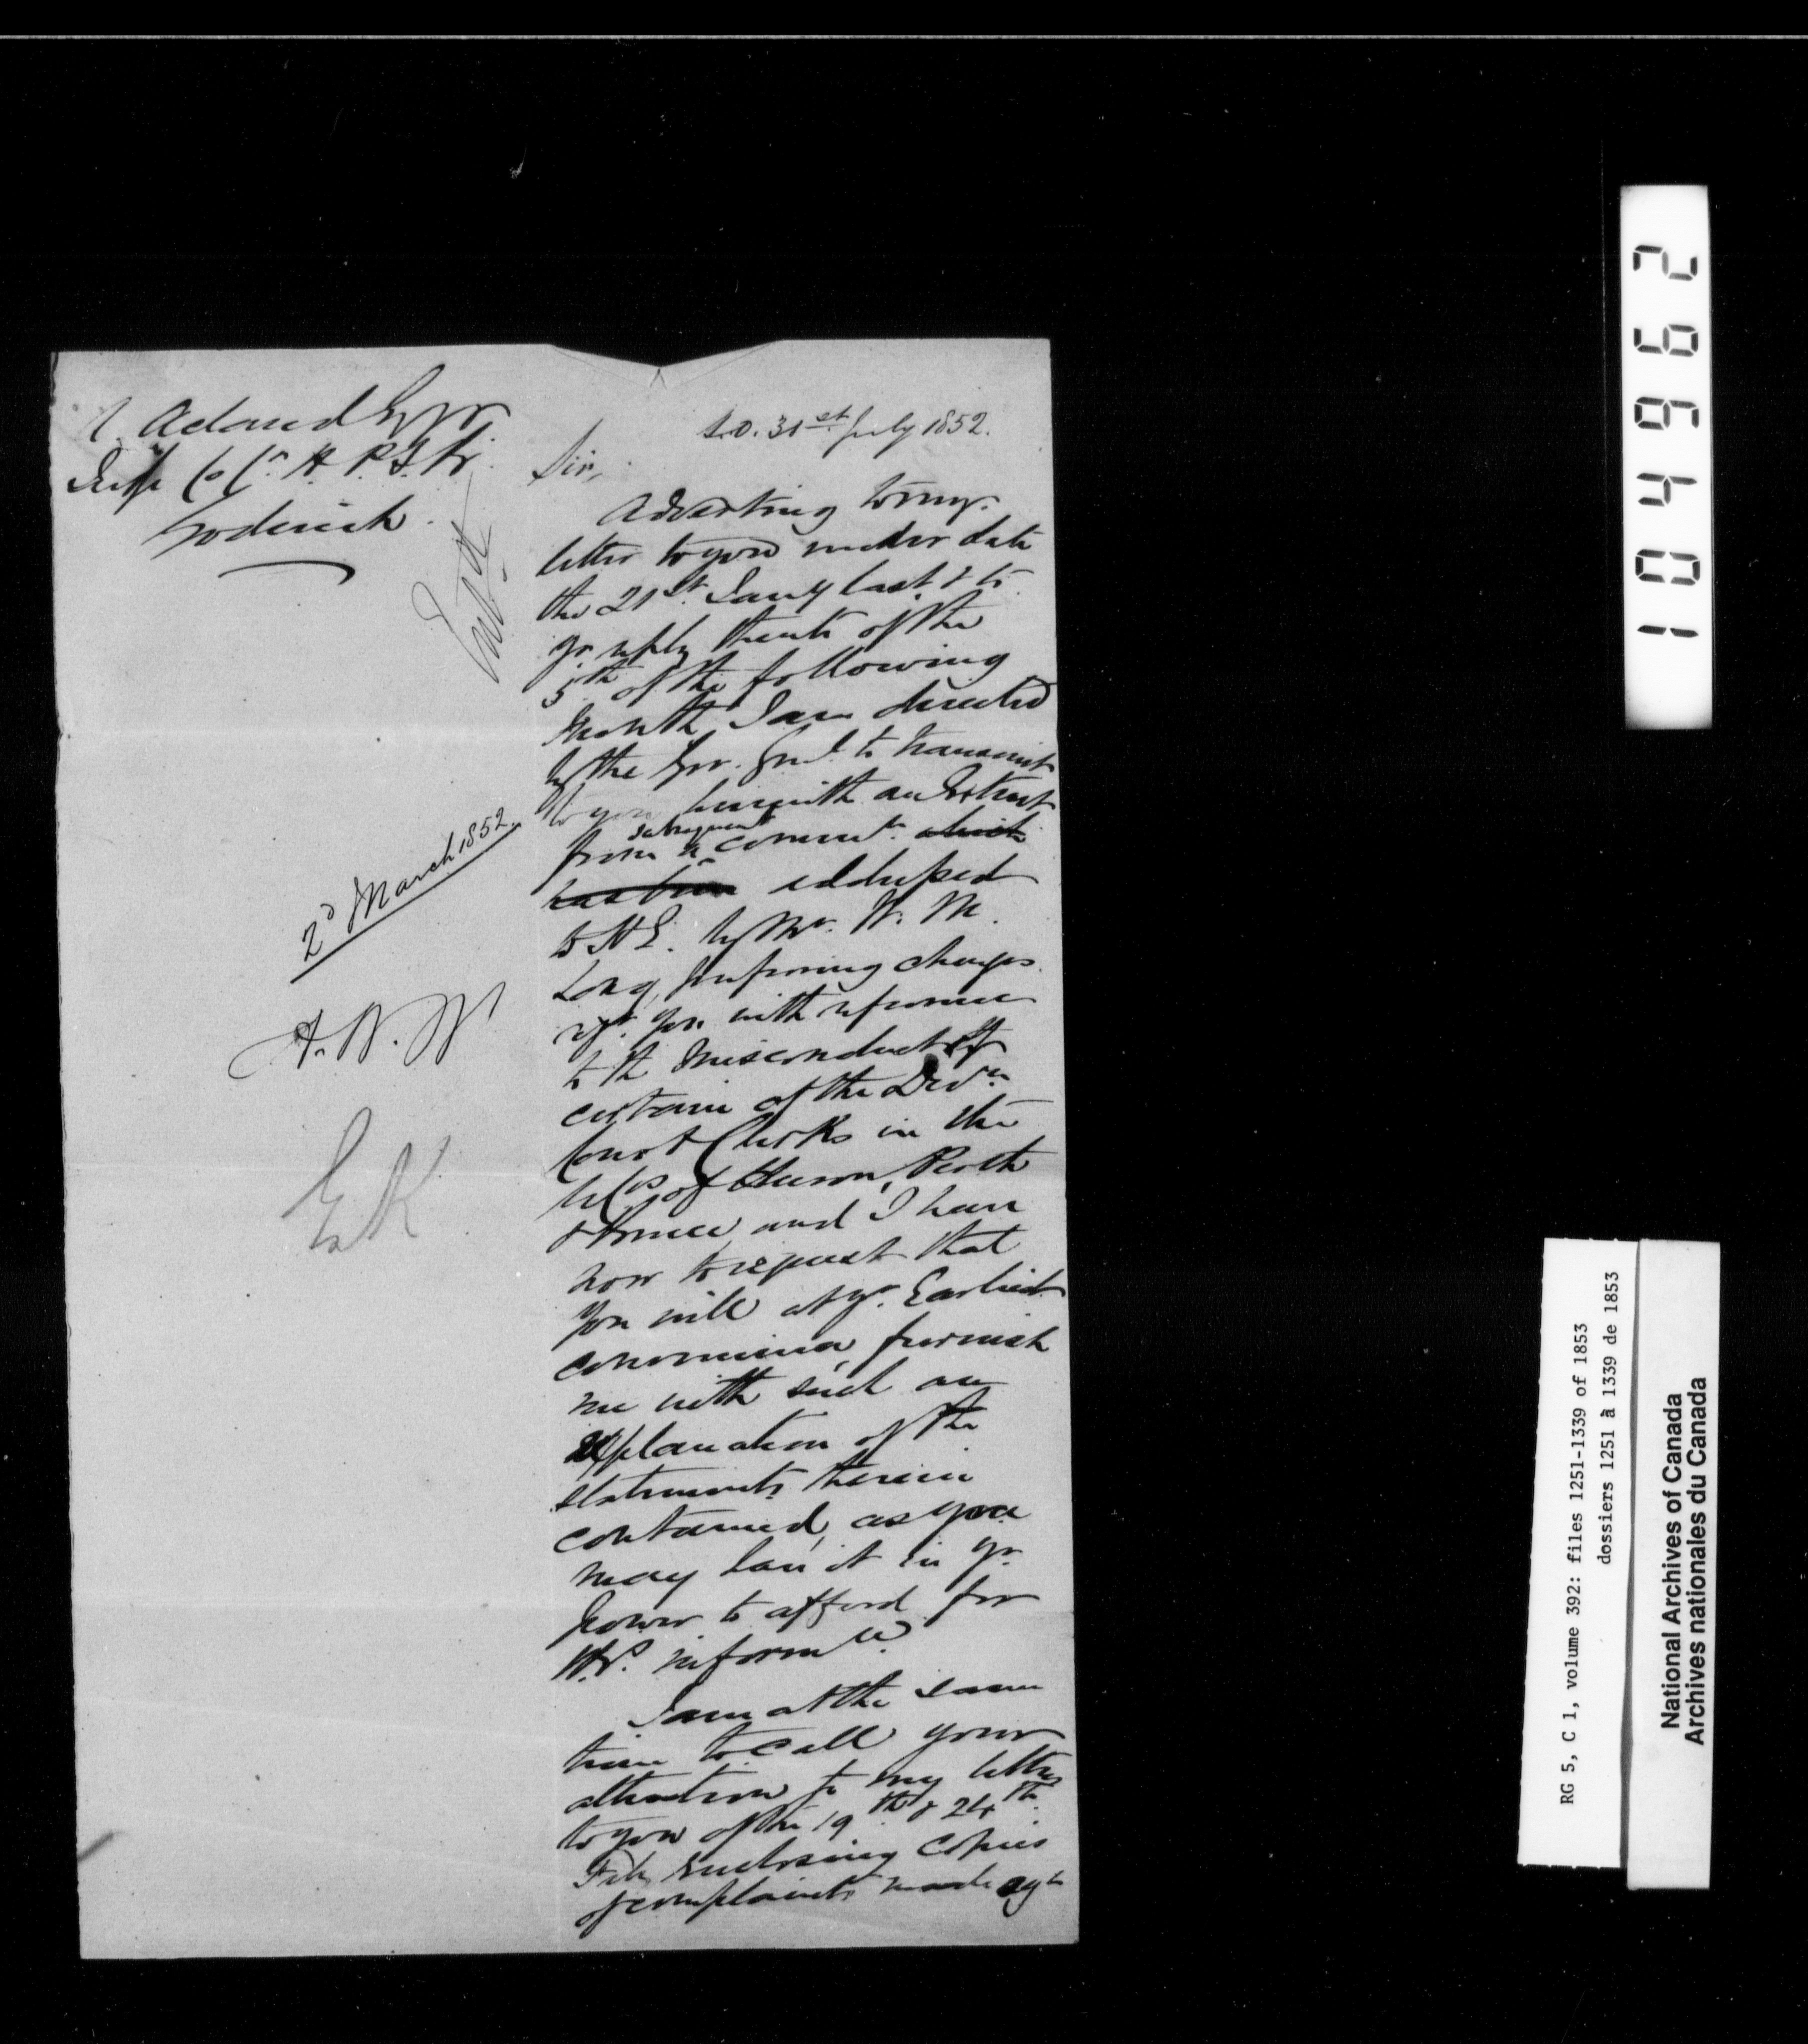 A. Acland Esqr
Judge Co. Ct. H. P. & Br.
Goderich.
S.O. 31st July 1852.
Sir,
Adverting to my
letter to you under date
the 21st Jany last & to
yr reply thereto of the
5th of the following
Month, I am directed
by the Gov. Genl. to transmit
to you herewith an Extract
from a subsequent commn. which
has been addressed
to H.E. by Mr. W. M.
Long, preferring charges
agt. you with reference
to the misconduct of
certain of the Divn.
Court Clerks in the
U Cos of Huron, Perth
& Bruce, and I have
now to request that
you will at yr. Earliest
convenience, furnish
me with such an
explanation of the
statements therein
contained, as you
may have it in yr.
power to afford for
H.E. informn.
I am at the same
time to call your
attention to my letters
to you of the 19th & 24th
Feb, enclosing copies
of complaints made agt
2d March 1852.
EK
104962
RG 5, C 1, volume 392: files 1251-1339 of 1853
dossiers 1251 à 1339 de 1853
National Archives of Canada
Archives nationales du Canada